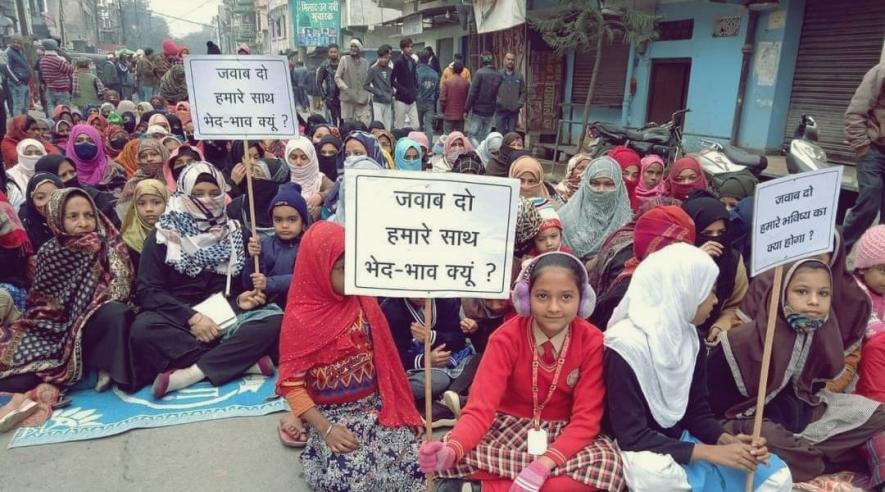 मुबारक
जवाब दो
हमारे साथ
भेद-भाव क्यूं ?
जवाब दो
हमारे साथ
भेद-भाव क्यूं ?
जवाब दो
हमारे भविष्य का
क्या होगा ?